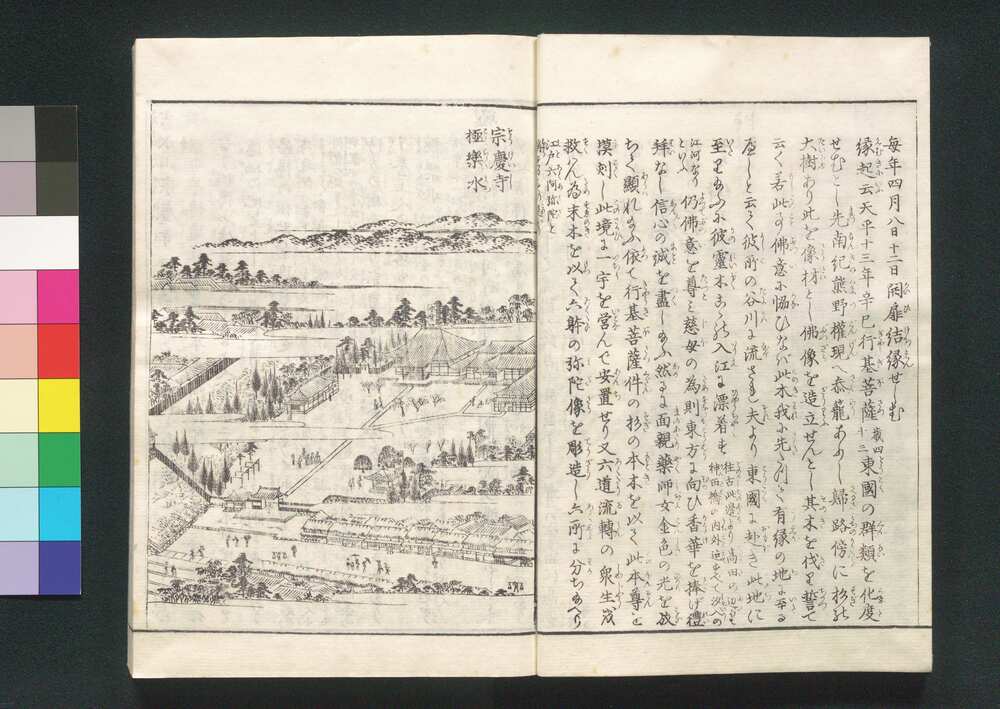 毎年四月八日十二日開扉結縁せしむ
縁起云天平十三年辛巳行基菩薩歳四十三東國の群類を化度
せむとし先南紀熊野權現へ参籠あり歸路傍に杉の
大樹あり此を像材とし佛像を造立せんとし其木を伐り誓て
云く若此木佛意に協ひなバ此木我に先たつて有縁の地に至る
へしと云々彼所の谷川に流さる夫より東國に赴き此地に
至りたまふに彼靈木この入江に漂着す
往古此邊より高田の邊
神田橋の内外迄もすへて入
江河なりといふ
仍佛意を尊ミ慈母の為則東方に向ひ香華を捧け禮
拝なし信心の誠を盡したまふ然るに面親藥師如金色の光を放
ちて顕れたまふ依て行基菩薩件の杉の本木を以て此本尊を
模刻し此境に一宇を営んて安置せり又六道流轉の衆生
救ん為末木を以て六躰の弥陀像を彫造し六所に分ちたまへり
江戸六阿弥陀と
宗慶寺
極樂水